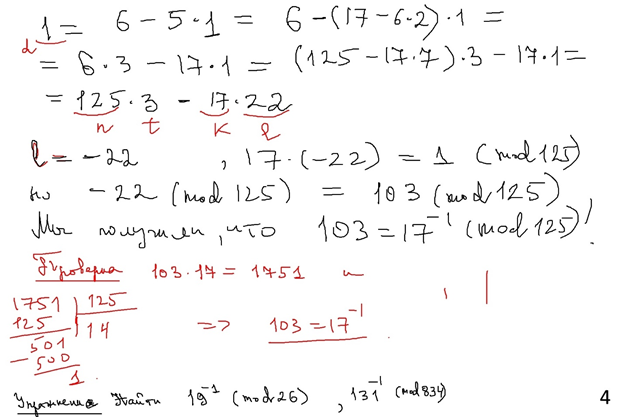 1 = 6 - 5·1 = 6 - (17 - 6·2)·1 =
d
= 6·3 - 17·1 = (125 - 17·7)·3 - 17·1 =
= 125·3 - 17·22
n t k l
l = -22 , 17·(-22) = 1 (mod 125)
но -22 (mod 125) = 103 (mod 125)
Мы получили, что 103 = 17⁻¹ (mod 125)!
Проверка 103·17 = 1751 и
1751 | 125
125 | 14
501
- 500
1.
=> 103 = 17⁻¹
Упражнение Найти 19⁻¹ (mod 26) , 131⁻¹ (mod 834)
4